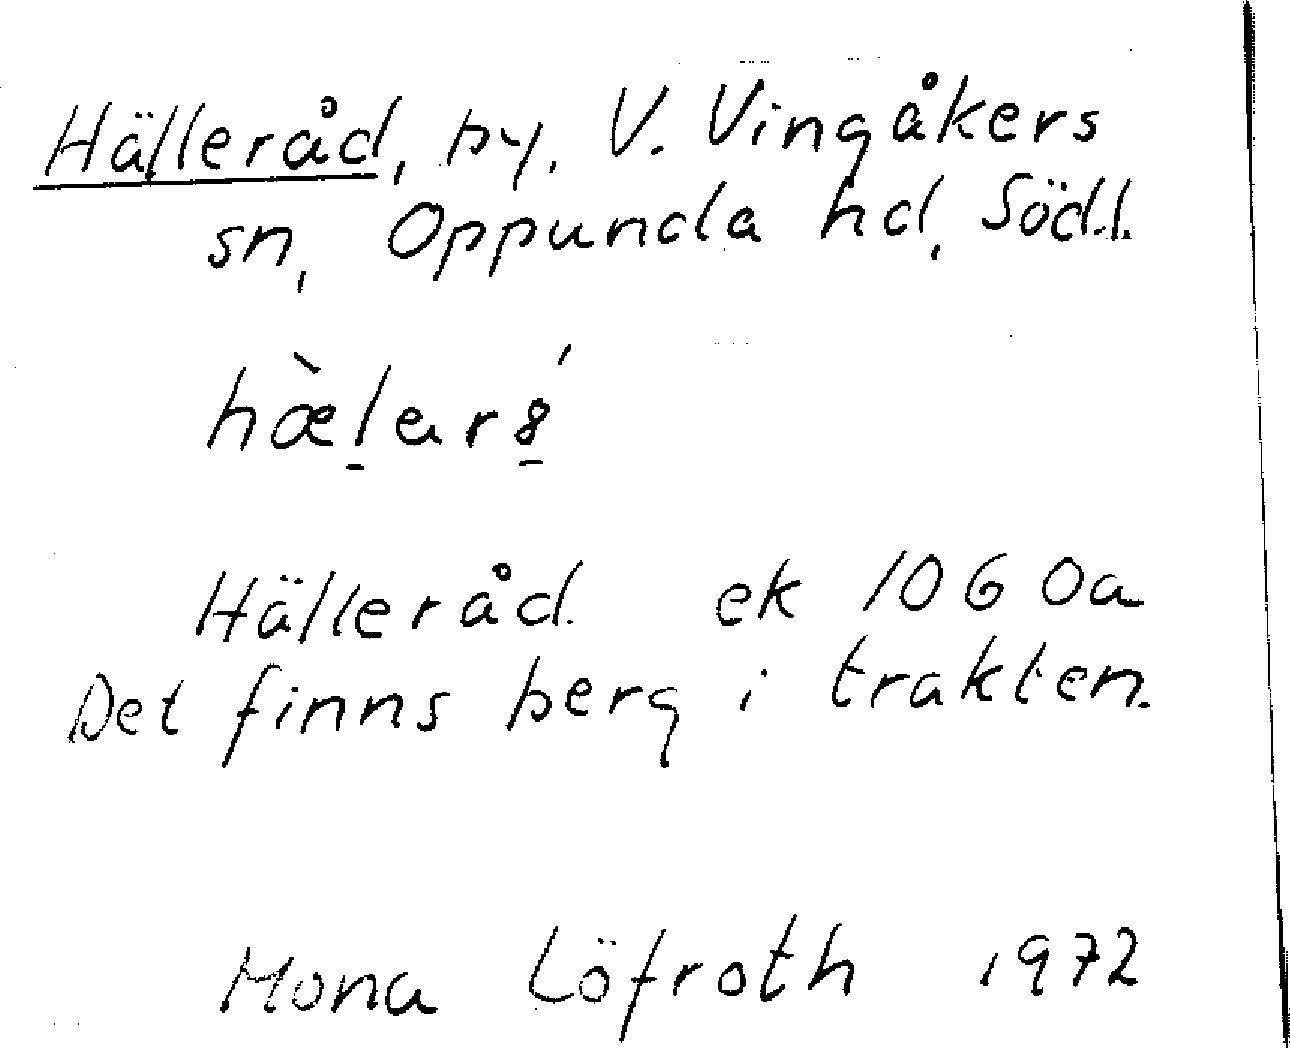 Hälleråd, by, V. Vingåkers
sn, Oppunda hd, Södl.
hæ̀l̠ɐr8̠́
Hälleråd. ek 10 G 0a
Det finns berg i trakten.
Mona Löfroth 1972